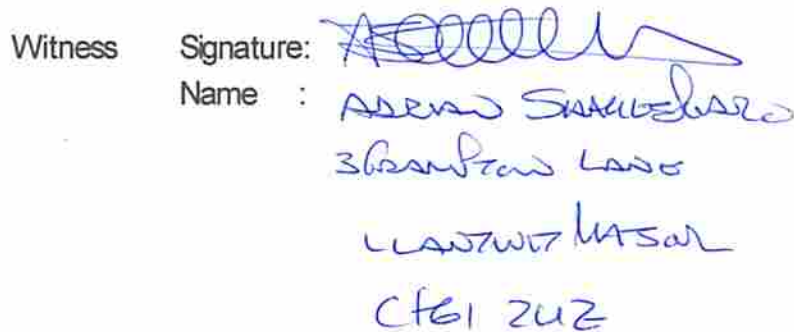 Witness Signature:
Name :
ADRIAN
3 GRAMPTON LANE
LLANTWIT MAJOR
CF61 2UZ